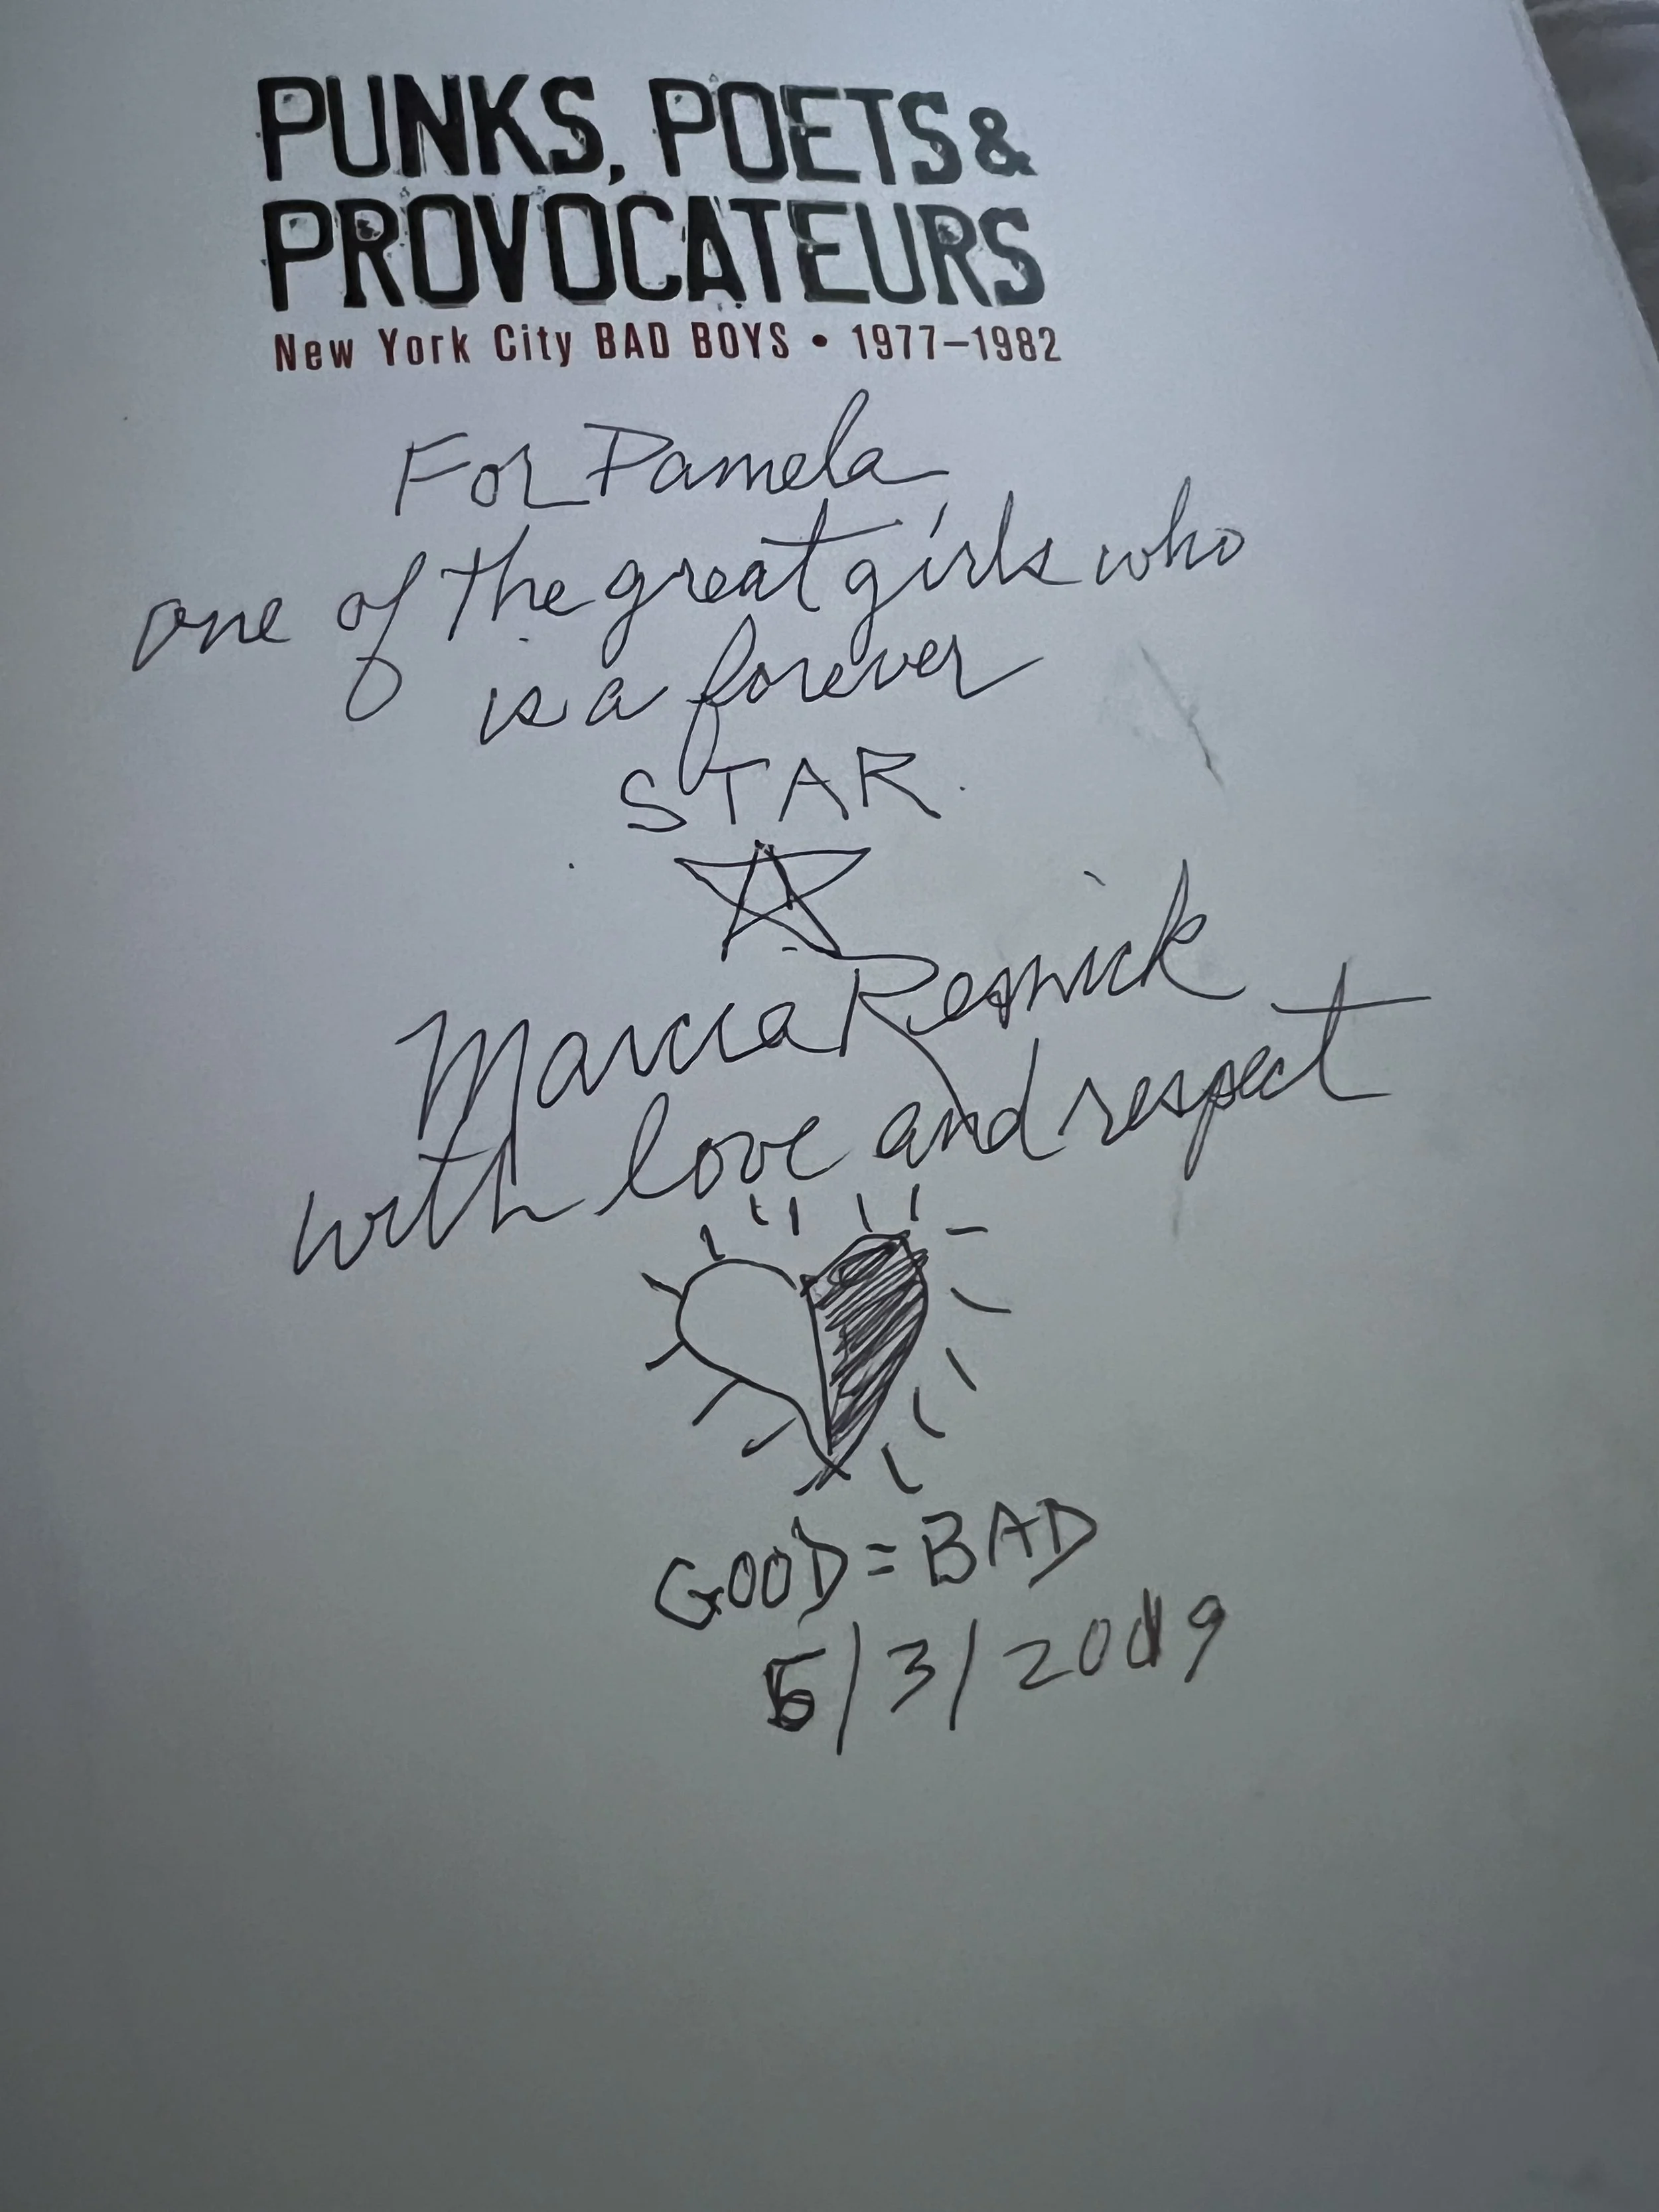 PUNKS, POETS &
PROVOCATEURS
New York City BAD BOYS • 1977–1982
For Pamela
one of the great girls who
is a forever
STAR.
Marcia Resnick
with love and respect
GOOD = BAD
5/3/2019